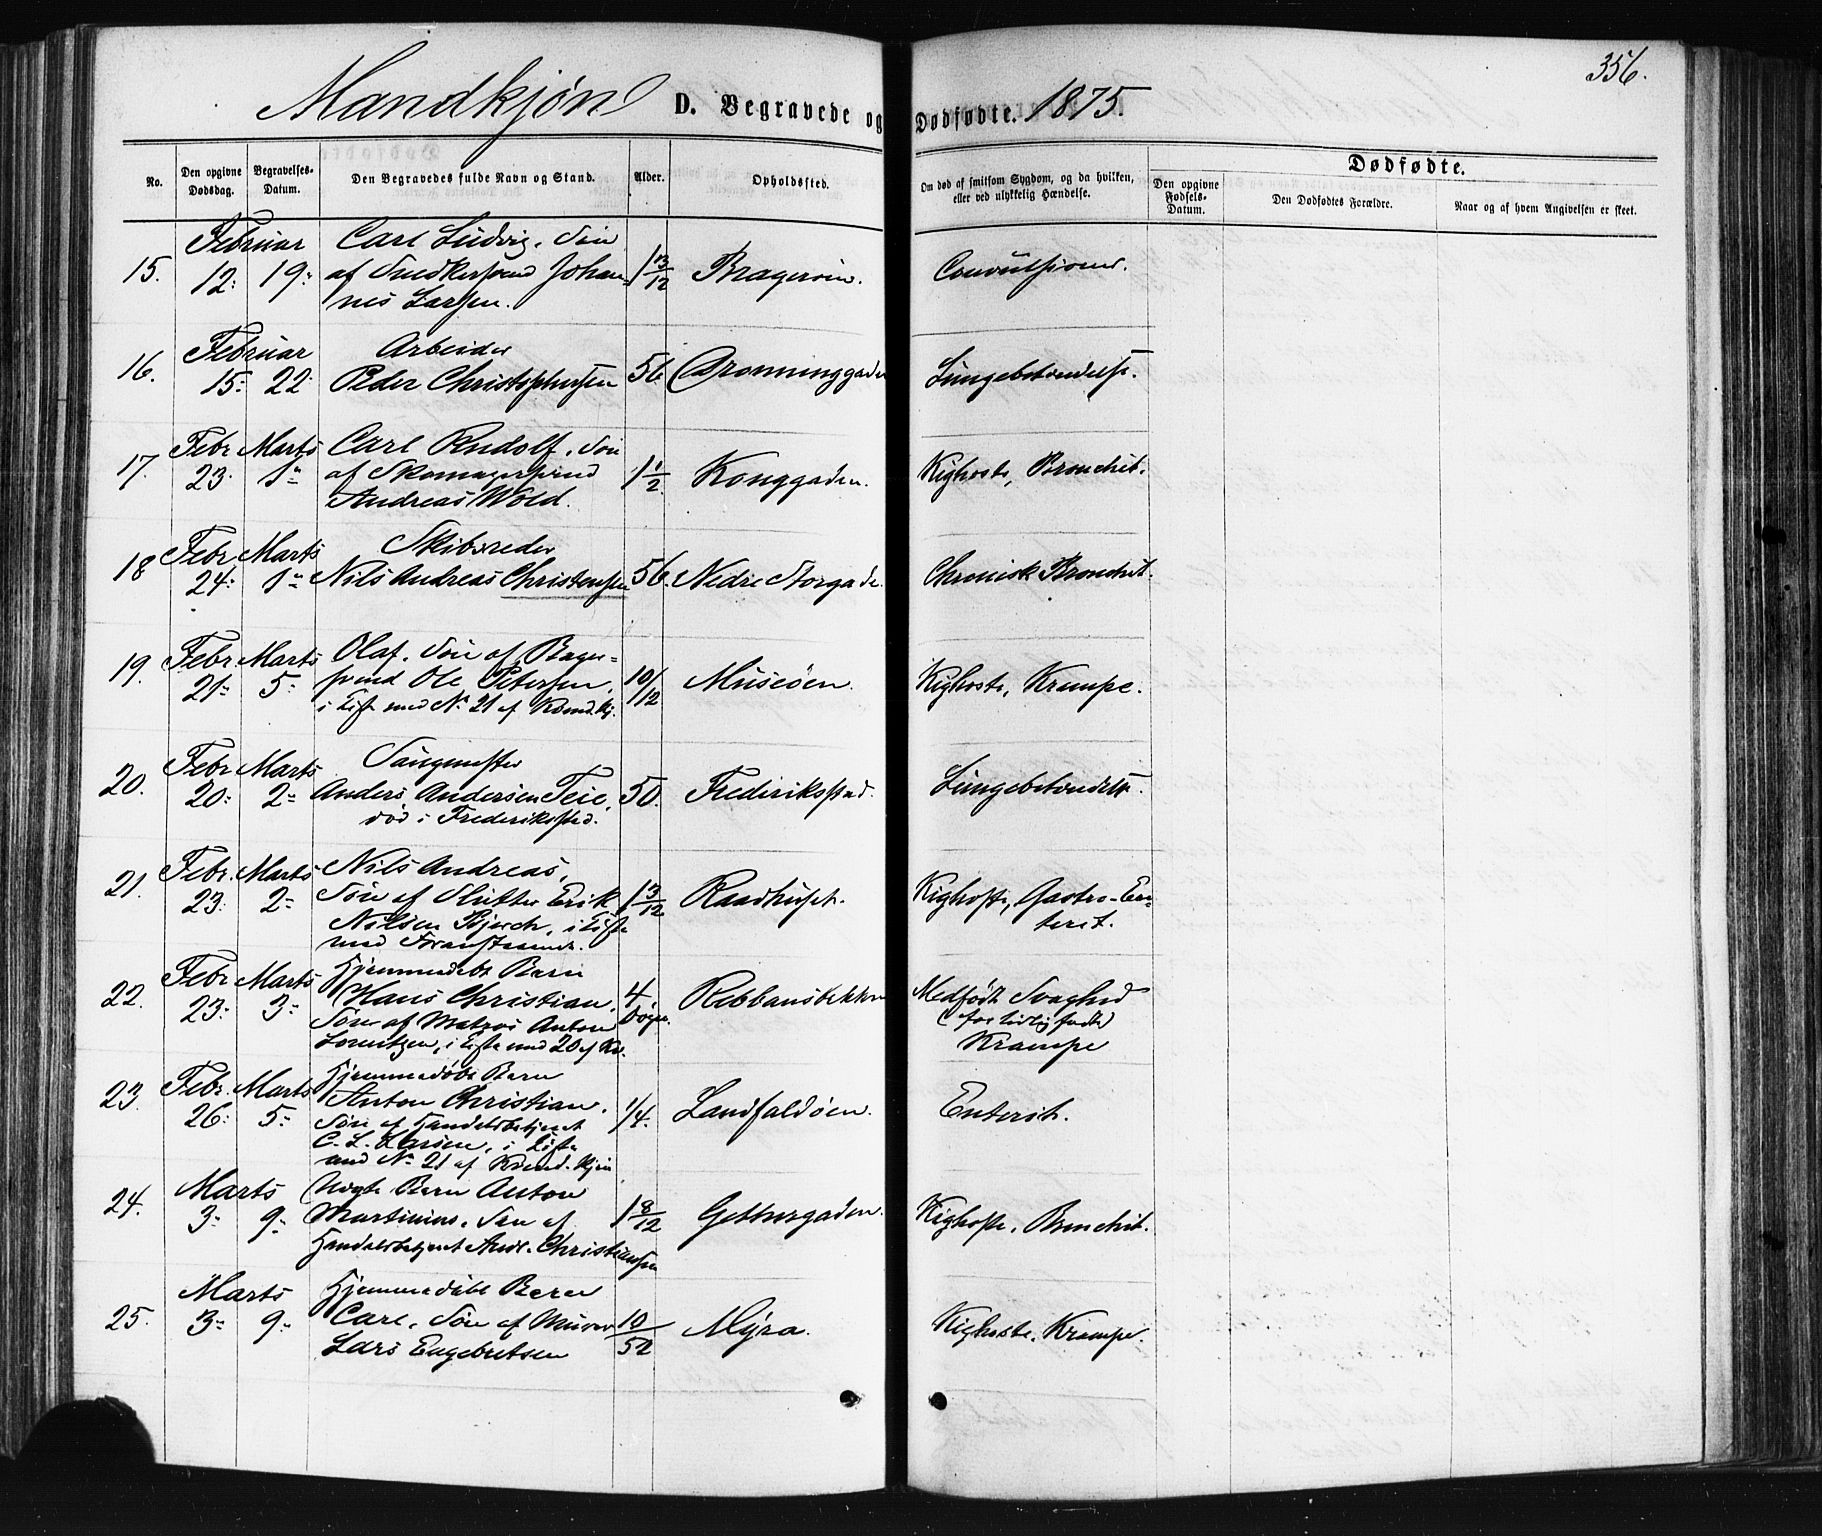 356.
Mandkjøn D. Begravede og Dødfødte. 1875.
No.
Den opgivne Dødsdag.
Begravelses-Datum.
Den Begravedes fulde Navn og Stand.
Alder.
Opholdssted.
Om død af smitsom Sygdom, og da hvilken,
eller ved ulykkelig Hændelse.
Dødfødte.
Den opgivne Fødsels-Datum.
Den Dødfødtes Forældre.
Naar og af hvem Angivelsen er skeet.
Februar Carl Ludvig, Søn
15. 12: 19: af Snedkersvend Johan- 1 3/12 Bragerøen. Convultsioner.
nes Larsen.
Februar Arbeider
16. 15: 22: Peder Christophersen 56 Dronninggaden Lungebetændelse.
Febr. Marts Carl Rudolf, Søn
17. 23. 1: af Skomagersvend 1 1/2 Konggaden. Kighoste, Bronchit.
Andreas Wold.
Febr. Marts Skibsreder
18 24: 1: Nils Andreas Christensen 56. Nedre Storgade. Chronisk Bronchit.
Febr. Marts Olaf, Søn af Bager-
19. 21: 5: svend Ole Petersen, 10/12 Museøen. Kighoste, Krampe.
i Kiste med No 21 af Kvindkj.
Febr. Marts Saugmester
20. 20: 2: Anders Andersen Teie, 50. Frederiksstad. Lungebetændelse.
død i Frederiksstad.
Febr. Marts Nils Andreas,
21. 23: 2: Søn af Slutter Erik 1 3/12 Raadhuset. Kighoste, Gastro-En-
Nilsen Bjerch, i Kiste terit.
med Foranstaaende.
Febr. Marts Hjemmedøbt Barn
22. 23: 3: Hans Christian, 4 Døgn. Rebbansbekken Medfødt Svaghed
Søn af Matros Anton (for tidlig født)
Lorentzen, i Kiste med 20 af Kv. Krampe
Febr. Marts Hjemmedøbt Barn
23. 26: 5: Anton Christian, 1/4. Landfaldøen. Enterit.
Søn af Handelsbetjent
C. L. Larsen, i Kiste
med No 21 af Kvindkjøn
Marts Uægte Barn Anton
24. 3: 9: Martinius, Søn af 1 8/12 Getheusgaden. Kighoste, Bronchit.
Handelsbetjent Andr. Christiansen
Marts Hjemmedøbt Barn
25. 3: 9: Carl, Søn af Murer 10/52 Myra. Kighoste, Krampe.
Lars Engebretsen